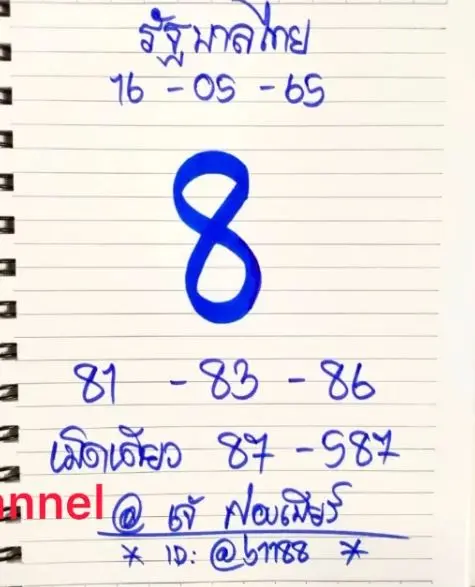 รัฐบาลไทย
16 - 05 - 65
8
81 - 83 - 86
เม็ดเดียว 87 - 587
annel @ เจ๊ ฟองเบียร์
* ID: @b1188 *